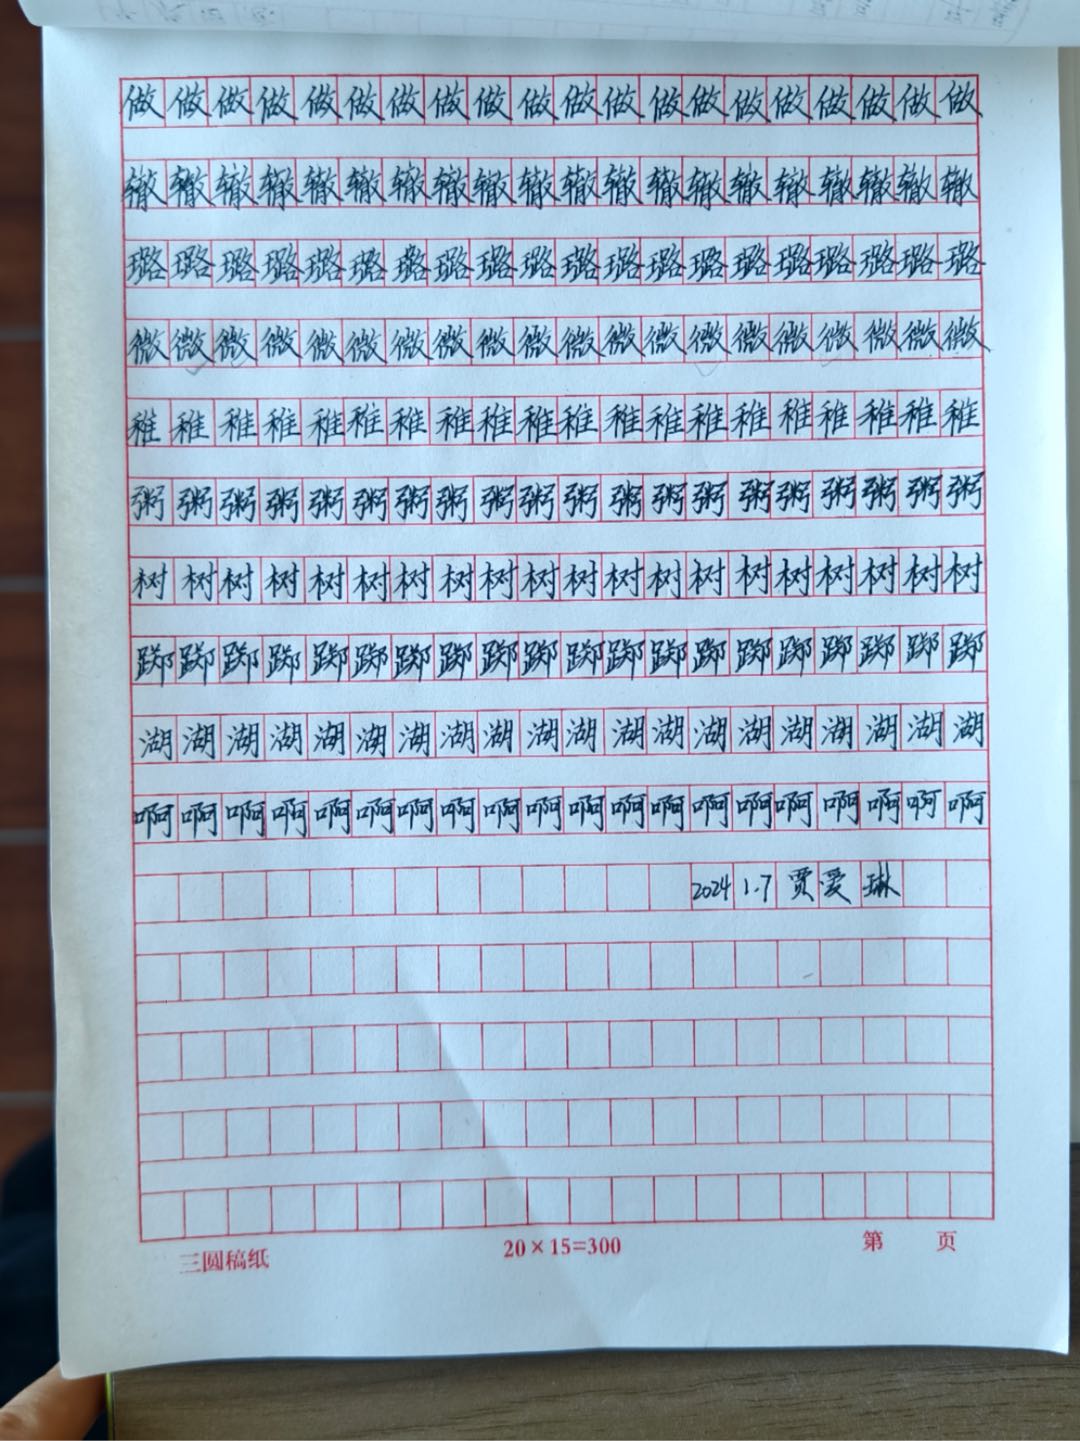 做做做做做做做做做做做做做做做做做做做做
辙辙辙辙辙辙辙辙辙辙辙辙辙辙辙辙辙辙辙辙
璐璐璐璐璐璐璐璐璐璐璐璐璐璐璐璐璐璐璐璐
微微微微微微微微微微微微微微微微微微微微
稚稚稚稚稚稚稚稚稚稚稚稚稚稚稚稚稚稚稚稚
粥粥粥粥粥粥粥粥粥粥粥粥粥粥粥粥粥粥粥粥
树树树树树树树树树树树树树树树树树树树树
踯踯踯踯踯踯踯踯踯踯踯踯踯踯踯踯踯踯踯踯
湖湖湖湖湖湖湖湖湖湖湖湖湖湖湖湖湖湖湖湖
啊啊啊啊啊啊啊啊啊啊啊啊啊啊啊啊啊啊啊啊
2024 1.7 贾爱琳
三圆稿纸 20×15=300 第 页